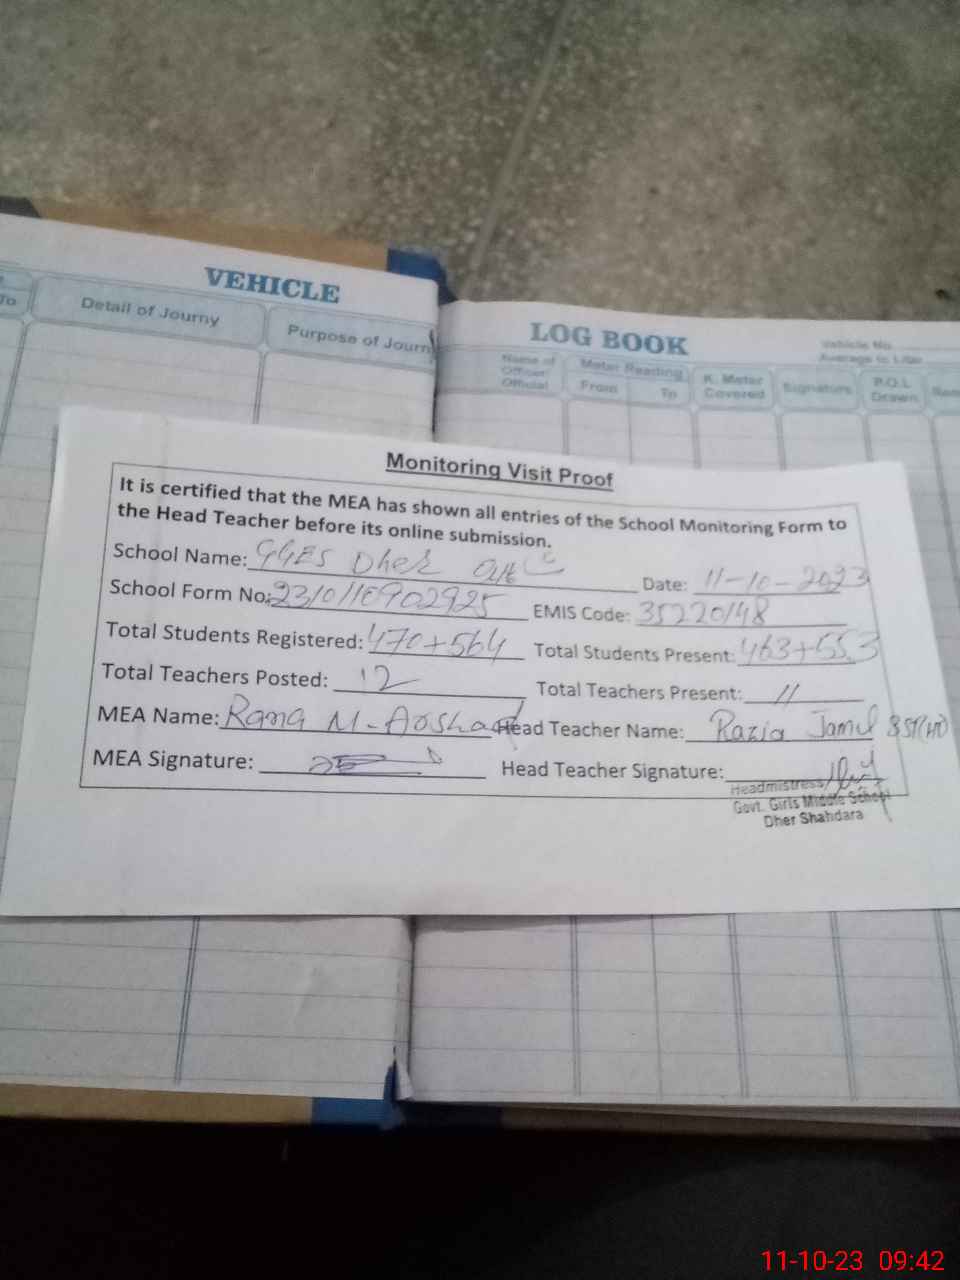 VEHICLE
To
Detail of Journy
Purpose of Journ
LOG BOOK
Vehicle No
Average in Liter
Name of Officer/ Official
Meter Reading
From
To
K. Meter Covered
Signature
P.O.L Drawn
Monitoring Visit Proof
It is certified that the MEA has shown all entries of the School Monitoring Form to
the Head Teacher before its online submission.
School Name: GGES Dher
Date: 11-10-2023
School Form No: 2310110902925
EMIS Code: 35220148
Total Students Registered: 470+564
Total Students Present: 463+553
Total Teachers Posted: 12
Total Teachers Present: 11
MEA Name: Rana M-Arshad
Head Teacher Name: Razia Jamil SST(HT)
MEA Signature:
Head Teacher Signature:
Headmistress
Govt. Girls Middle School
Dher Shahdara
11-10-23 09:42